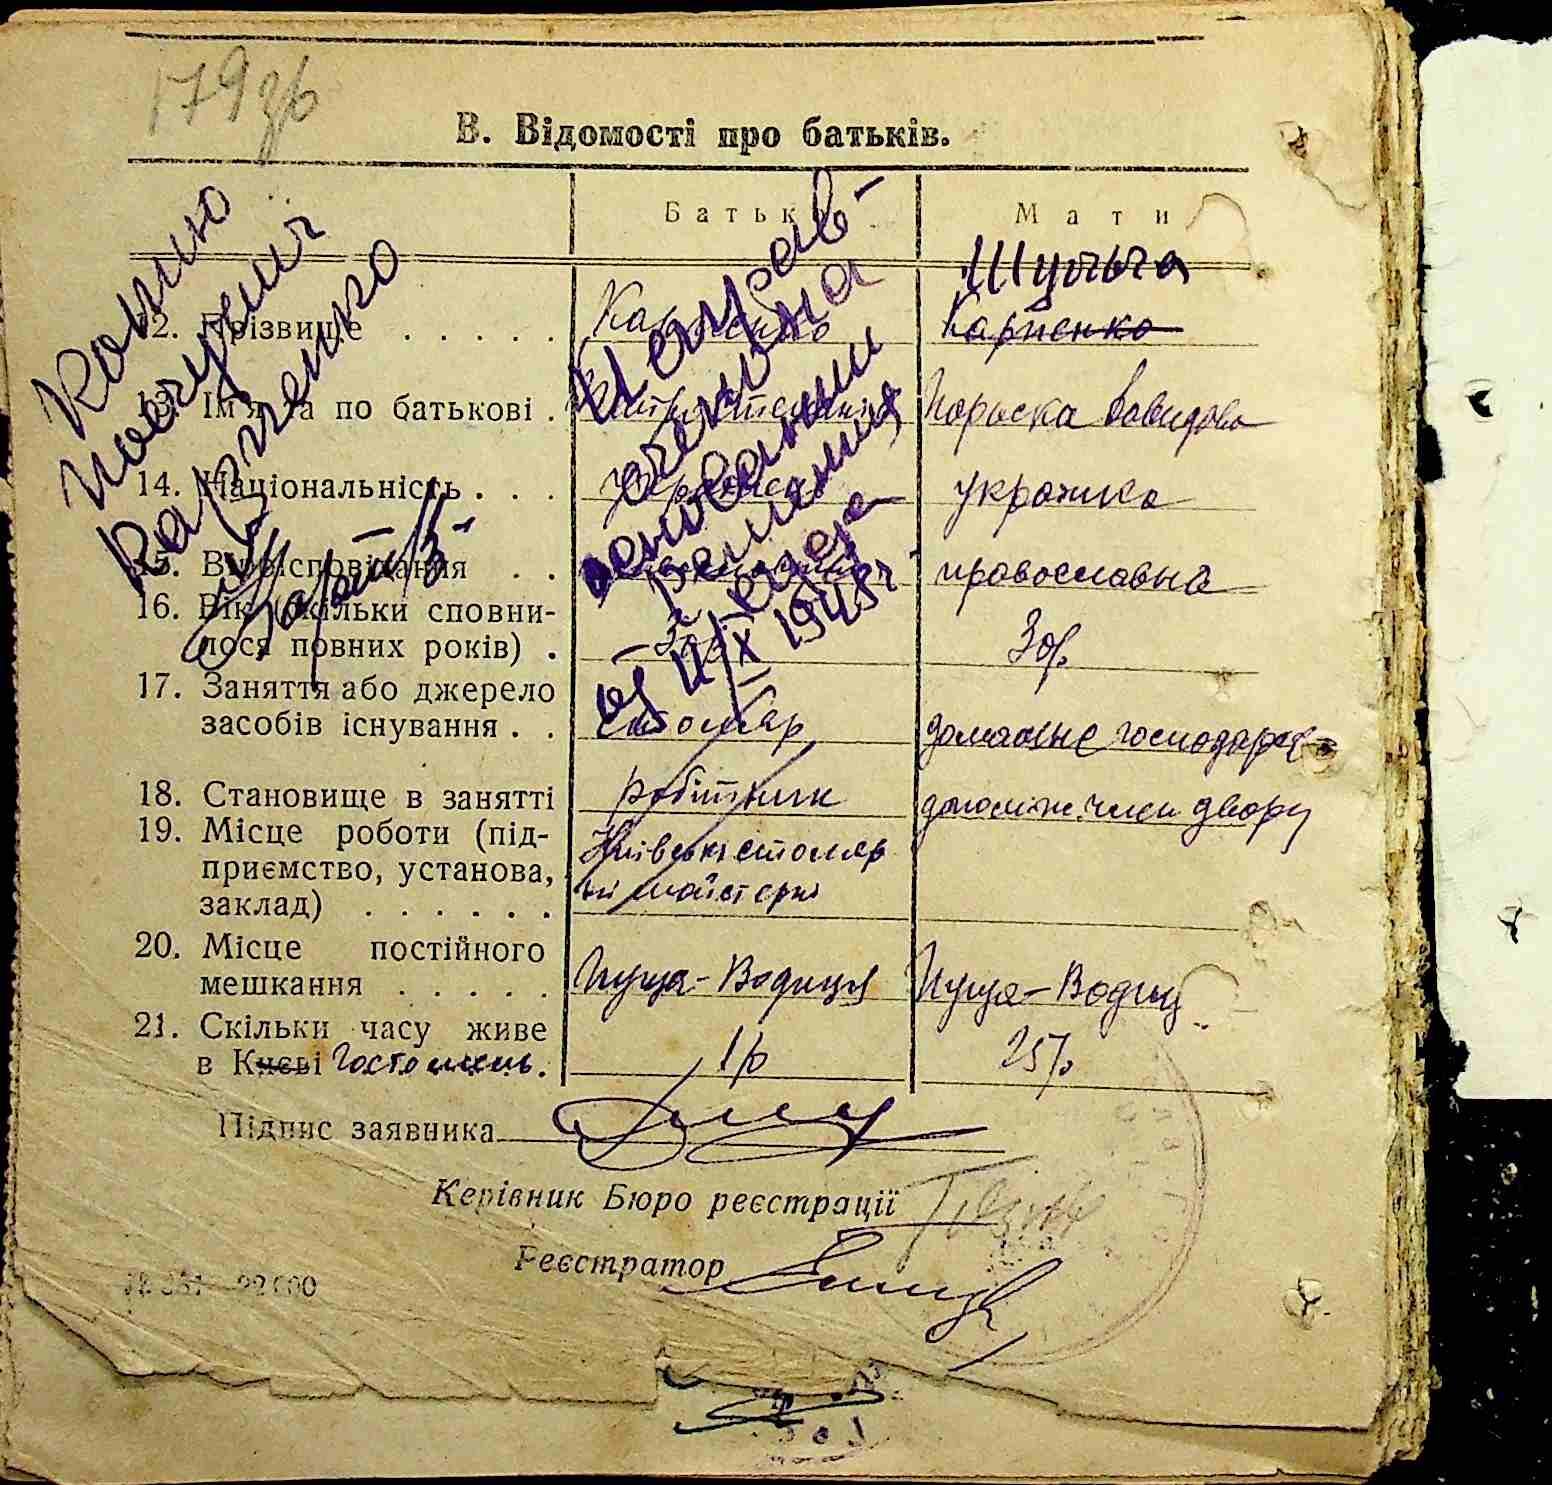 179 зр
В. Відомості про батьків.
Батько Мати
Шульга
12. Прізвище . . . . . Карпенко Карпенко
13. Ім'я та по батькові . Параска Давидова
14. Національність . . . українка
15. Віросповідання . . православна
16. Вік (скільки сповни-
лося повних років) . 30р.
17. Заняття або джерело
засобів існування . . столяр домашнє господарст
18. Становище в занятті робітник допоміж. член двору
19. Місце роботи (під-
приємство, установа,
заклад) . . . . . . Київські столяр
ні майстерні
20. Місце постійного
мешкання . . . . . Пуща-Водиця Пуща-Водиц
21. Скільки часу живе
в Києві Гостомель. 1р 25р.
Копию
получил
Карпенко
Исправ-
на
основании
решения
от 11/X 1945г
Підпис заявника
Керівник Бюро реєстрації
Реєстратор